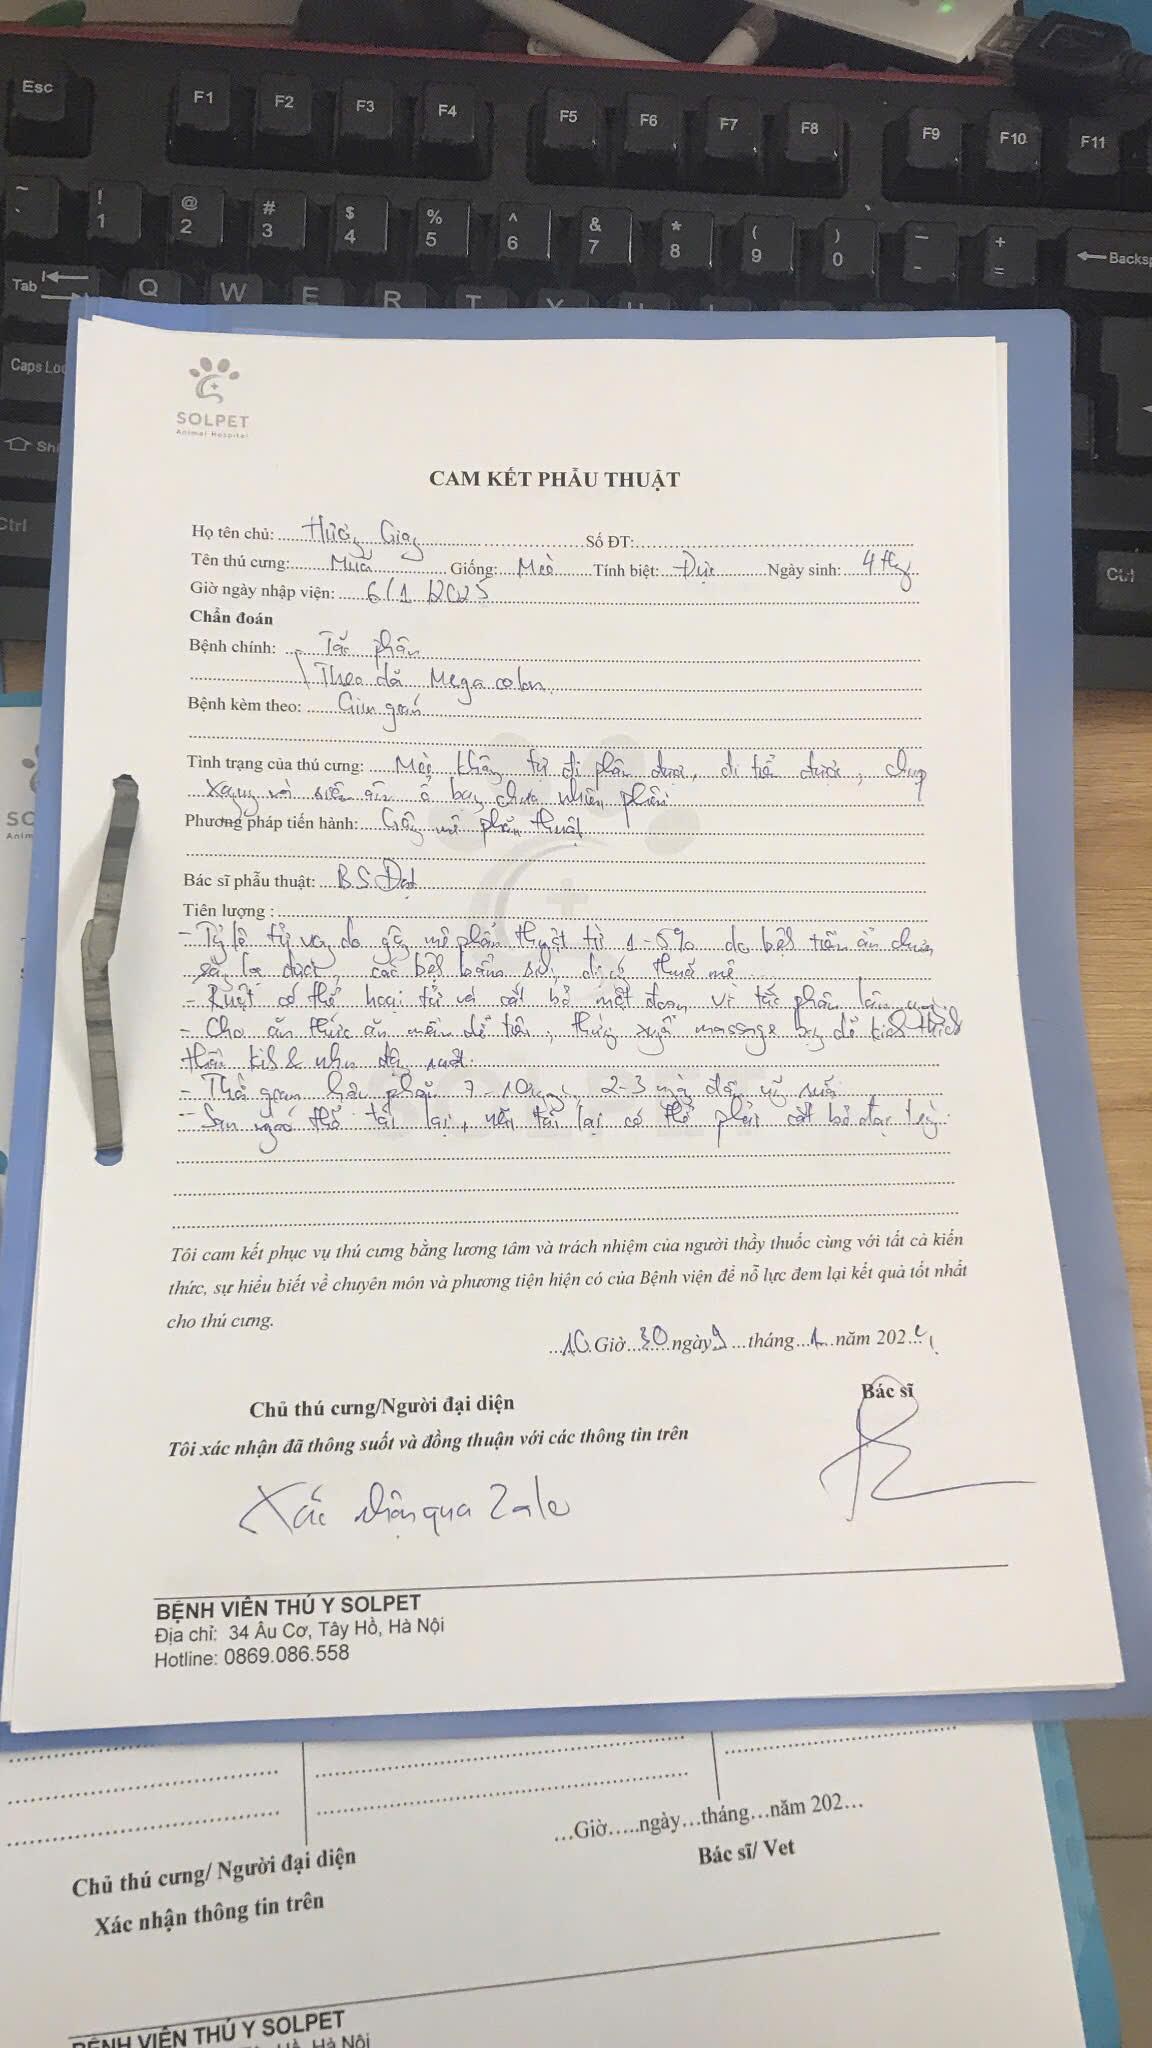 Esc F1 F2 F3 F4 F5 F6 F7 F8 F9 F10 F11
~ ! @ # $ % ^ & * ( ) _ +
` 1 2 3 4 5 6 7 8 9 0 - =
Backsp
Tab Q W E R T Y
Caps Loc
Shi
Ctrl
Ctrl
SOLPET
Animal Hospital
CAM KẾT PHẪU THUẬT
Họ tên chủ: Hương Giang Số ĐT:
Tên thú cưng: Giống: Mèo Tính biệt: Đực Ngày sinh: 4 thg
Giờ ngày nhập viện: 6/1/2025
Chẩn đoán
Bệnh chính: - Tắc phân
Theo dõi Mega colon.
Bệnh kèm theo:
Tình trạng của thú cưng: Mèo không tự đi phân được, đi tiểu được, chụp
Xquang và siêu âm ổ bụng chứa nhiều phân
Phương pháp tiến hành: Gây mê phẫu thuật
Bác sĩ phẫu thuật: B.S. Đạt
Tiên lượng :
- Tỷ lệ tử vong do gây mê phẫu thuật từ 1-5% do bệnh tiềm ẩn chưa
sàng lọc được, các bệnh bẩm sinh, dị ứng thuốc mê
- Ruột có thể hoại tử và cắt bỏ một đoạn vì tắc phân lâu ngày
- Cho ăn thức ăn mềm dễ tiêu, thường xuyên massage bụng để kích thích
thần kinh & nhu động ruột.
- Thời gian hậu phẫu 7-10 ngày, 2-3 ngày đầu
có thể tái lại, nếu tái lại có thể phải cắt bỏ đại tràng.
Tôi cam kết phục vụ thú cưng bằng lương tâm và trách nhiệm của người thầy thuốc cùng với tất cả kiến
thức, sự hiểu biết về chuyên môn và phương tiện hiện có của Bệnh viện để nỗ lực đem lại kết quả tốt nhất
cho thú cưng.
10 Giờ 30 ngày 9 tháng 1 năm 202
Chủ thú cưng/Người đại diện Bác sĩ
Tôi xác nhận đã thông suốt và đồng thuận với các thông tin trên
Xác nhận qua Zalo
BỆNH VIỆN THÚ Y SOLPET
Địa chỉ: 34 Âu Cơ, Tây Hồ, Hà Nội
Hotline: 0869.086.558
...Giờ.....ngày...tháng...năm 202...
Chủ thú cưng/ Người đại diện Bác sĩ/ Vet
Xác nhận thông tin trên
BỆNH VIỆN THÚ Y SOLPET
Hà Nội